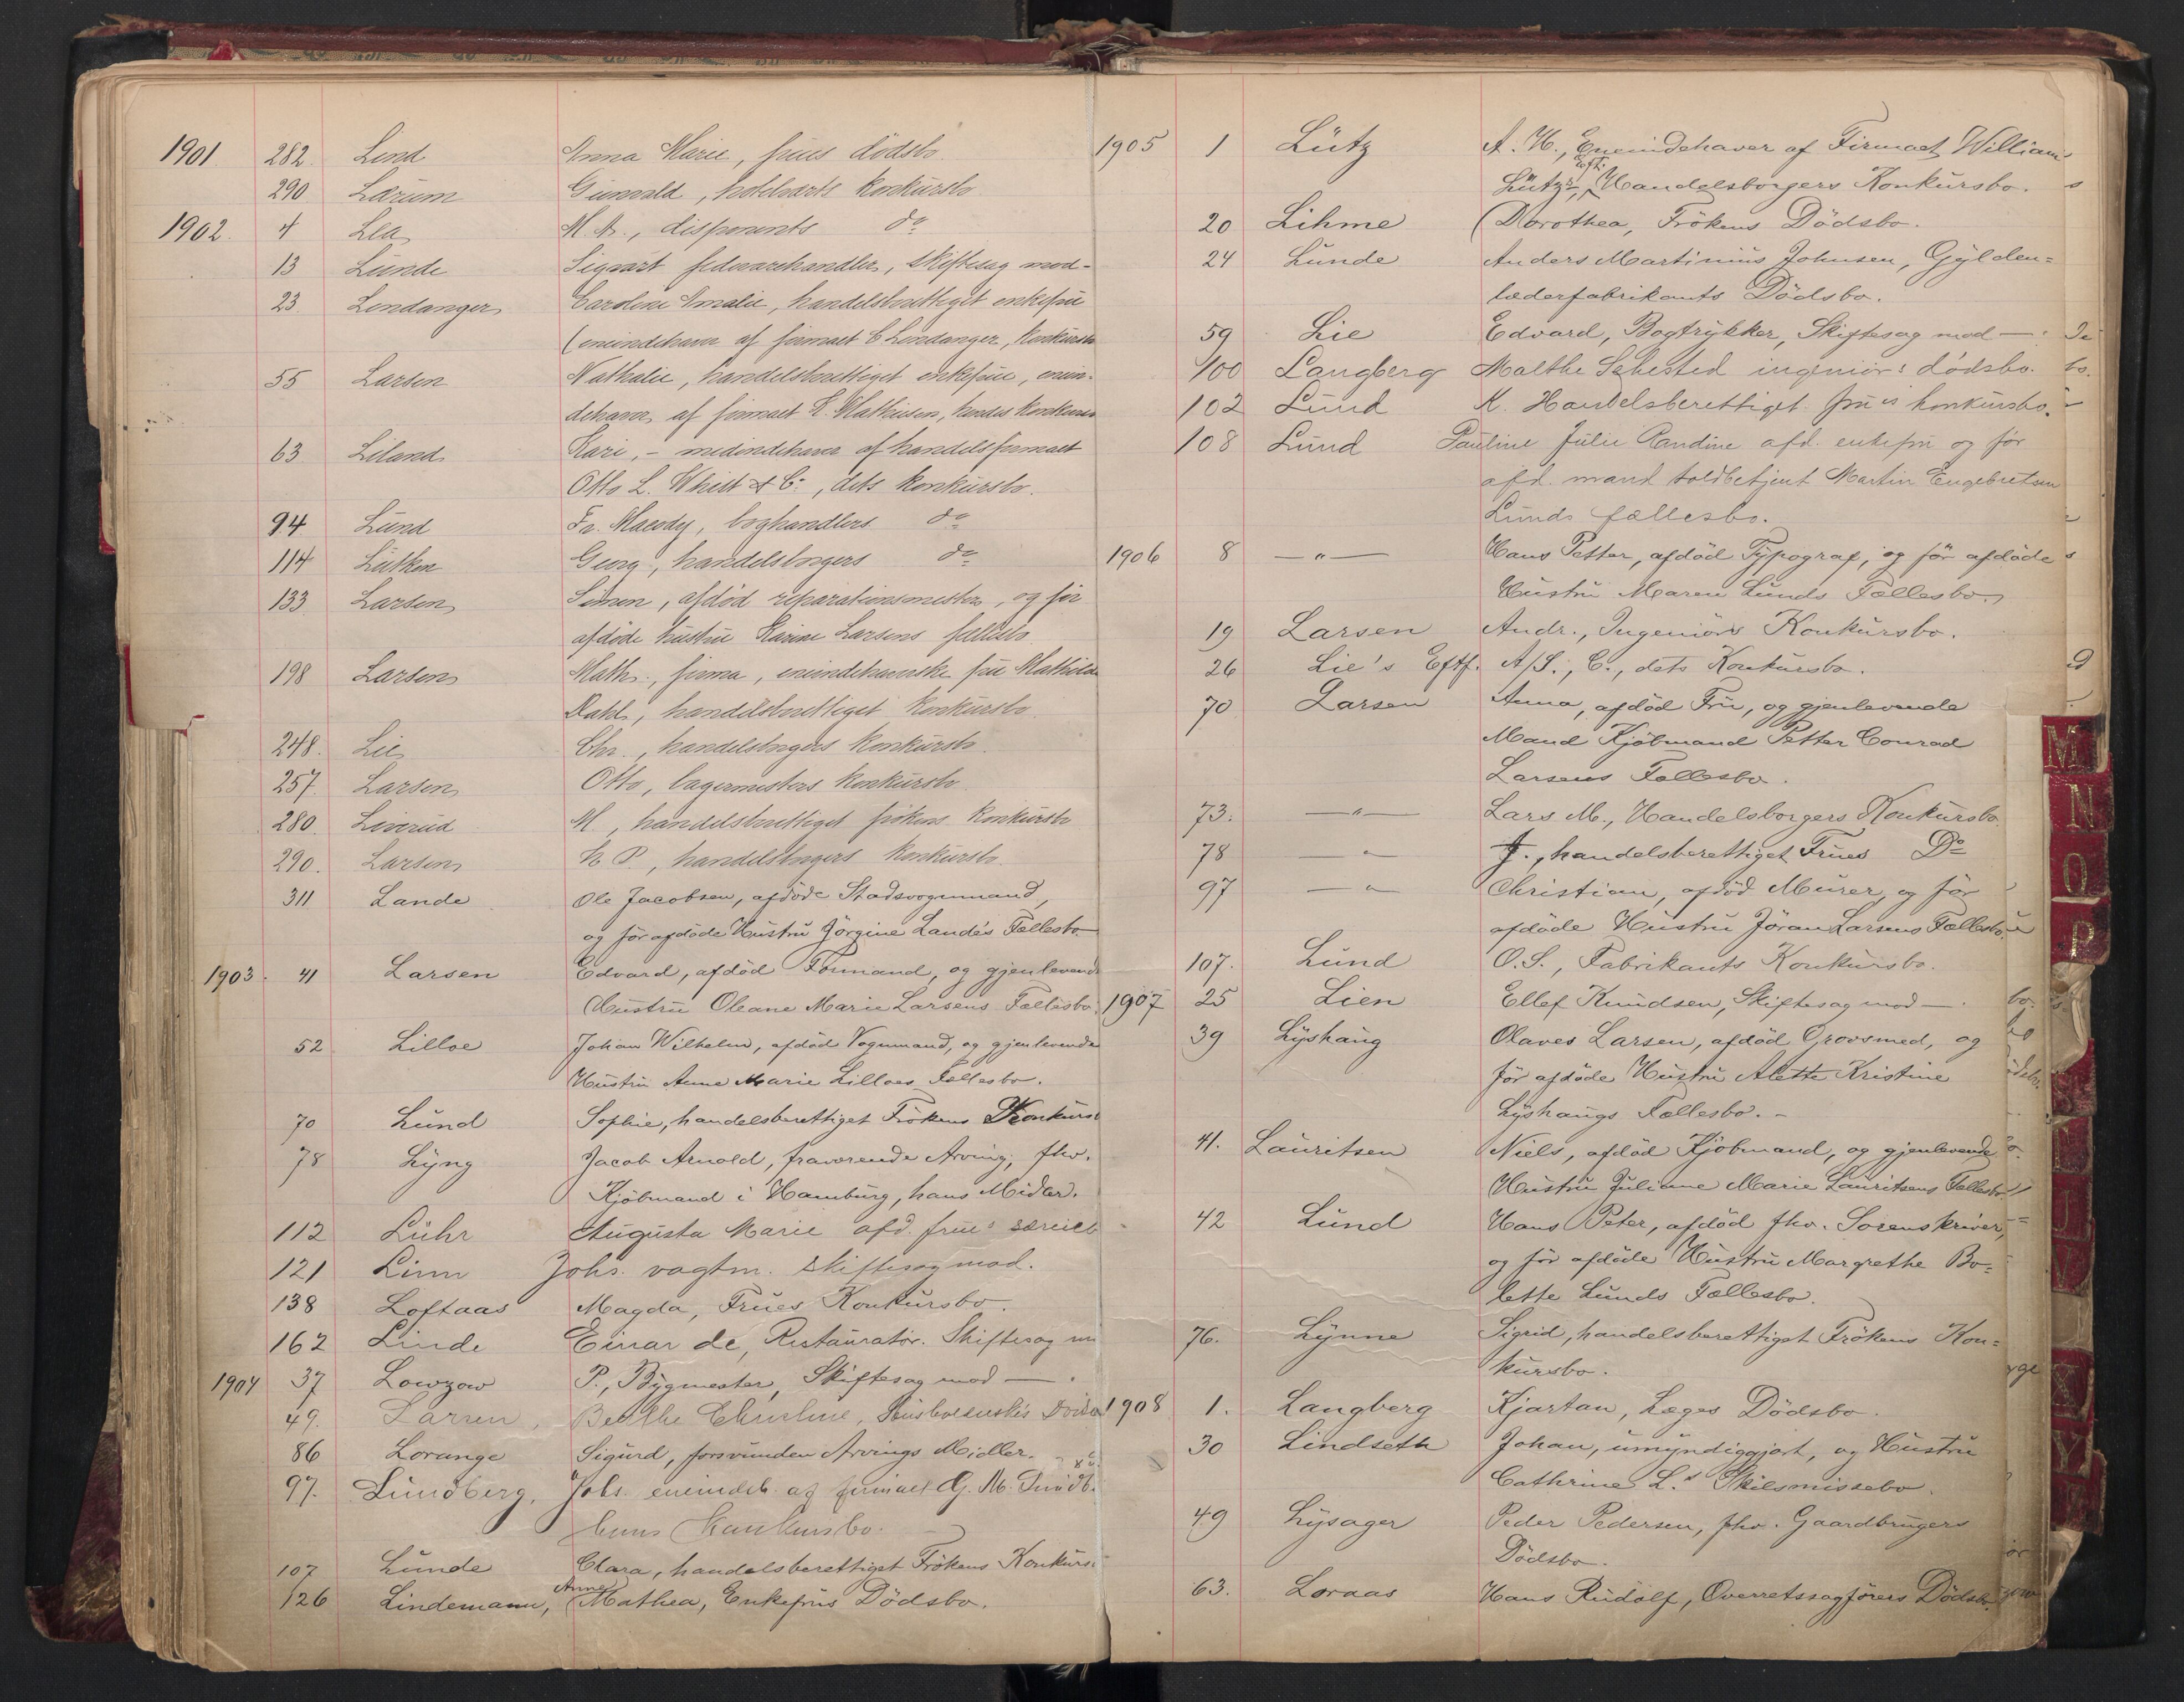 1901 282. Lind Anna Marie, frues dödsbo.
290 Larum Gunvald, hotelværts konkursbo
1902. 4 Lea M. A., disponents do
13 Lunde Sigvart fedevarehandler, skiftesag mod-
23 Londanger Caroline Amalie, handelsberettiget enkefrue
(eneindehaver af firmaet C Londanger, konkursbo
55 Larsen Nathalie, handelsberettiget enkefrue, enein-
dehaver af firmaet K. Mathiesen, hendes konkursbo
63 Leland Kari, - medindehaver af handelsfirmaet
Otto L. Whist & Co, dets konkursbo.
94 Lund Fr. Macody, boghandlers do
114 Lütken Georg, handelsborgers do
133 Larsen Simen, afdød reparationsmester, og før
afdøde hustru Karine Larsens fællesbo
198 Larsen Math., firma, eneindehaverske frue Mathilde
Dahl, handelsberettiget konkursbo
248. Lie Chr., handelsborgers konkursbo.
257. Larsen Otto, lagermesters konkursbo
280. Leverud M., handelsberettiget frøkens konkursbo
290. Larsen N P., handelsborgers konkursbo.
311 Lande Ole Jacobsen, afdöde Stadsvognmand,
og för afdöde Hustru Jörgine Lande's Fællesbo
1903. 41 Larsen Edvard, afdöd Formand, og gjenlevende
Hustru Oleane Marie Larsens Fællesbo.
52 Lilloe Johan Wilhelm, afdöd Vognmand, og gjenlevende
Hustru Anne Marie Lilloes Fællesbo.
70 Lund Sophie, handelsberettiget Frökens Konkurs
78 Lyng Jacob Arnold, fraværende Arving, fhv.
Kjöbmand i Hamburg, hans Midler.
112 Lühr Augusta Marie afd. frues særeiebo
121 Linn Johs. vagtm. skiftesag mod.
138 Loftaas Magda, Frues Konkursbo.
162 Linde Einar de, Restauratör. Skiftesag m
1904 37 Lowzow P., Bygmester, Skiftesag mod —.
49. Larsen, Berthe Christine, Husbestyrerinde's Dödsbo
86 Lorange Sigurd, forsvunden Arvings Midler.
97. Lundberg, Johs. eneindeh. af firmaet
hans Konkursbo.
107 Lunde Clara, handelsberettiget Frökens Konkurs-
126 Lindemann, Anne Mathea, Enkefrus Dödsbo.
1905 1 Lütz A. H., Eneindehaver af Firmaet William
Lütz's Eftf., Handelsborgers Konkursbo.
20 Lihme Dorothea, Frökens Dödsbo.
24 Lunde Anders Martinius Johnsen, Gylden=
læderfabrikants Dödsbo.
59 Lie Edvard, Bogtrykker, Skiftesag mod —.
100 Langberg Malthe Sehested ingeniörs dödsbo.
102 Lund K. Handelsberettiget frues konkursbo.
108 Lund Pauline Julie Randine afd. enkefru og för
afd. mand toldbetjent Martin Engebretsen
Lunds fællesbo.
1906 8 —"— Hans Petter, afdöd Typograf, og för afdöde
Hustru Maren Lunds Fællesbo.
19 Larsen Andr., Ingeniörs Konkursbo.
26 Lie's Eftf. A/S., C., dets Konkursbo.
70 Larsen Anna, afdöd Fru, og gjenlevende
Mand Kjöbmand Petter Conrad
Larsens Fællesbo.
73. —"— Lars M., Handelsborgers Konkursbo.
78 —"— J., handelsberettiget Frues Do
97 —"— Christian, afdöd Murer, og för
afdöde Hustru Jöran Larsens Fællesbo.
107. Lund O. S., Fabrikants Konkursbo.
1907 25 Lien Ellef Knudsen, Skiftesag mod —.
39 Lyshaug Olaves Larsen, afdöd Grovsmed, og
för afdöde Hustru Alette Kristine
Lyshaugs Fællesbo. -
41. Lauritsen Niels, afdöd Kjöbmand, og gjenlevende
Hustru Juliane Marie Lauritsens Fællesbo.
42 Lund Hans Peter, afdöd fhv. Sorenskriver,
og för afdöde Hustru Margrethe Bo=
lette Lunds Fællesbo.
76. Lynne Sigrid, handelsberettiget Frökens Kon=
kursbo.
1908 1. Langberg Kjartan, Læges Dödsbo.
30 Lindseth Johan, umyndiggjort, og Hustru
Cathrine L.s Skilsmissebo.
49 Lysager Peder Pedersen, fhv. Gaardbrugers
Dödsbo.
63. Loraas Hans Rudolf, Overretssagförers Dödsbo.
M
N
O
P
X
Y